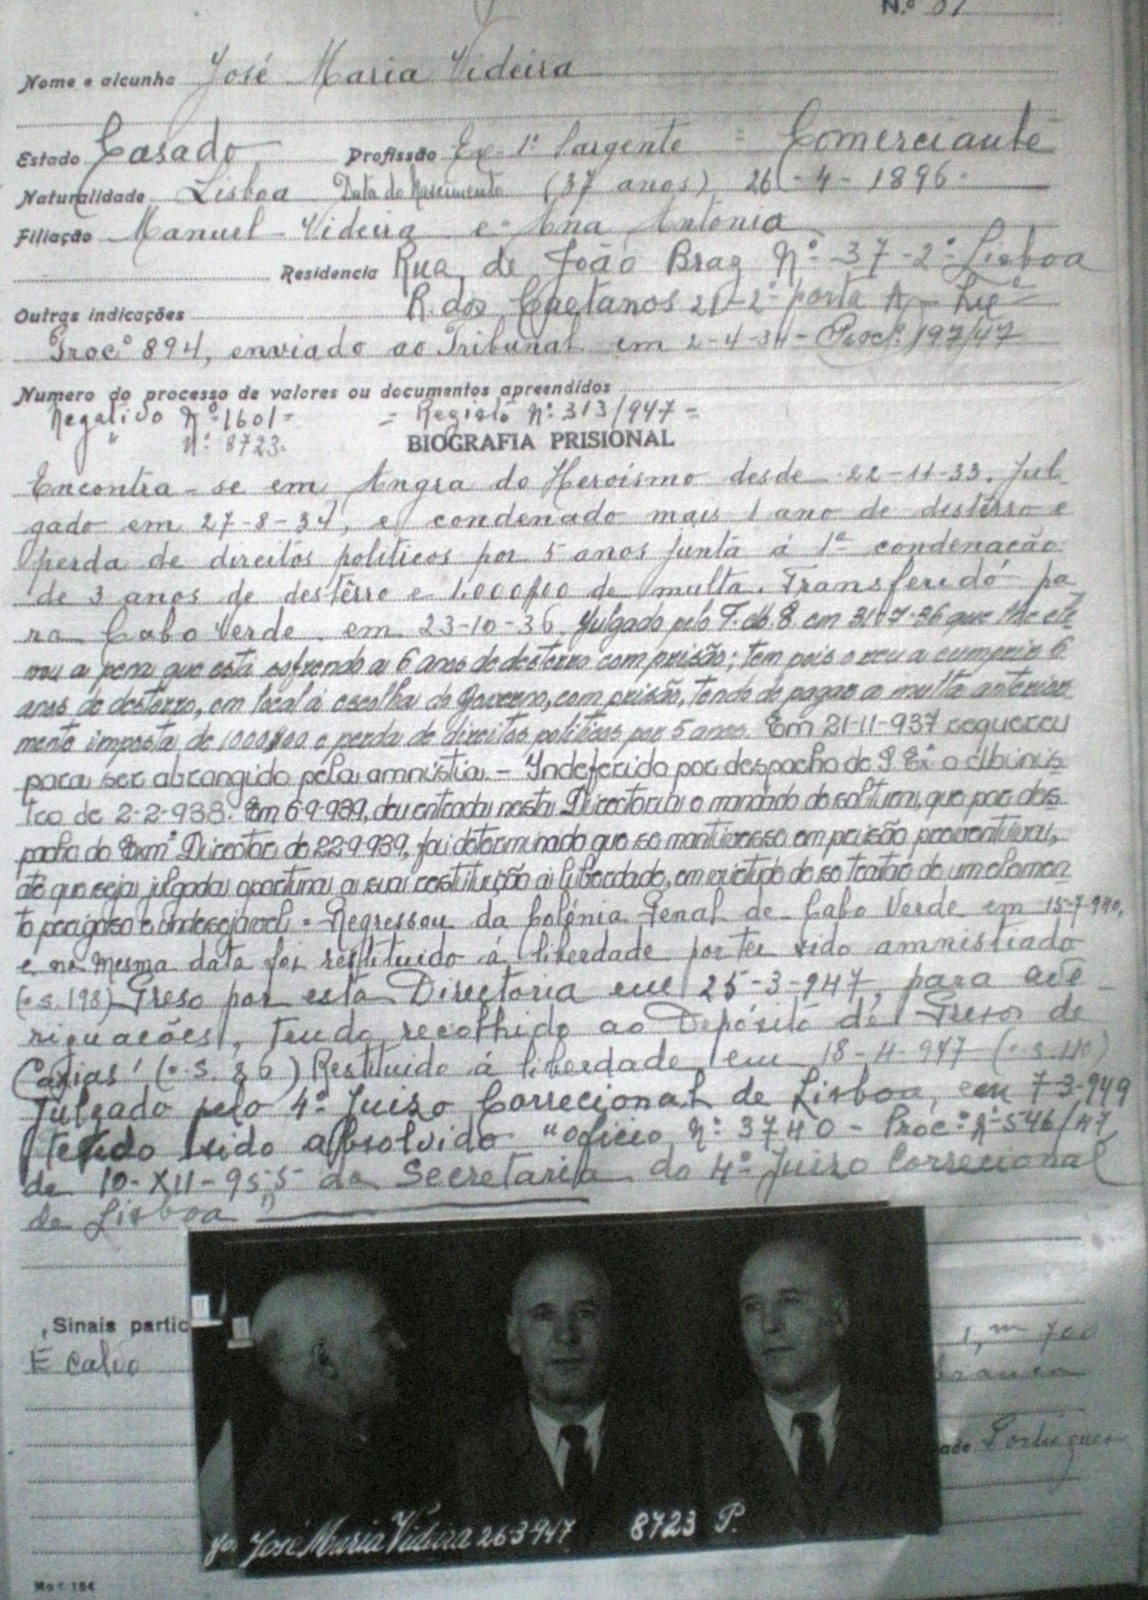 N.º 81
Nome e alcunha José Maria Videira
Estado Casado Profissão Ex-1º Sargente = Comerciante
Naturalidade Lisboa Data do Nascimento (37 anos) 26-4-1896
Filiação Manuel Videira e Ana Antonia
Residencia Rua de João Braz Nº 37-2º Lisboa
R. dos Caetanos 21-2º porta A
Outras indicações
Procº 894, enviado ao Tribunal em 2-4-34 - Procº 197/47
Numero do processo de valores ou documentos apreendidos
Negativo Nº 1601 = = Registo Nº 313/947 =
" Nº 8723.
BIOGRAFIA PRISIONAL
Encontra-se em Angra do Heroismo desde 22-11-33. Jul-
gado em 27-8-34, e condenado mais 1 ano de destêrro e
perda de direitos politicos por 5 anos junta á 1ª condenação
de 3 anos de destêrro e 1.000$00 de multa. Transferido pa
ra Cabo Verde em 23-10-36. Julgado pelo T.M.E. em 31-7-36 que lhe ele-
vou a pena que está sofrendo a 6 anos de desterro com prisão; tem pois o reu a cumprir 6
anos de desterro, em local á escolha do Governo, com prisão, tendo de pagar a multa anterior
mente imposta de 1000$00 e perda de direitos politicos por 5 anos. Em 21-11-937 requereu
para ser abrangido pela amnistia. - Indeferido por despacho de S. Exª o Minis-
tro de 2-2-938. Em 6-9-939, deu entrada nesta Directoria o mandado de soltura, que por des-
pacho do Exmº Director de 22-9-939, foi determinado que se mantivesse em prisão preventiva,
até que seja julgada oportuna a sua restituição á liberdade, em virtude de se tratar de um elemen-
to perigoso e indesejavel. - Regressou da Colónia Penal de Cabo Verde em 15-7-940,
e na mesma data foi restituido á liberdade por ter sido amnistiado
(o.s. 198) Preso por esta Directoria em 25-3-947, para ave-
riguações, tendo recolhido ao Depósito de Presos de
Caxias (o.s. 86) Restituido á liberdade em 18-4-947 (o.s. 110)
Julgado pelo 4º Juizo Correcional de Lisboa, em 7-3-949
tendo sido absolvido "oficio nº 3740 - Procº nº 546/47
de 10-XII-955 da Secretaria do 4º Juizo Correcional
de Lisboa"
Sinais partic
É calvo
1,m 700
branca
ade Portuguesa
José Maria Videira 26-3-947 8723 P.
Mod. 194